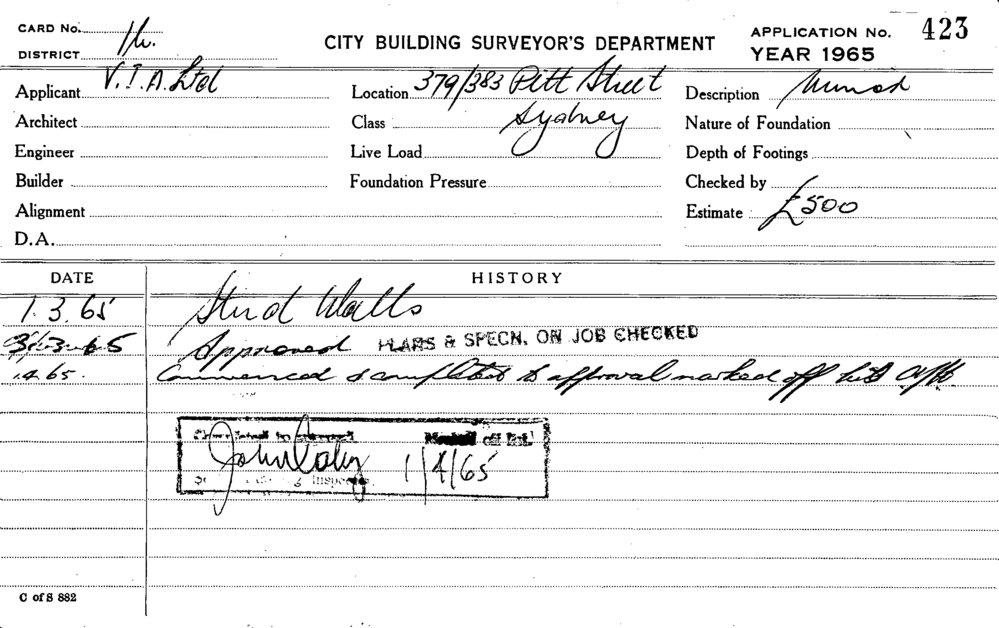 CARD No. 1h.
DISTRICT
CITY BUILDING SURVEYOR'S DEPARTMENT
APPLICATION No. 423
YEAR 1965
Applicant V.I.A. Ltd
Location 379/383 Pitt Street
Sydney
Description
Architect
Class
Nature of Foundation
Engineer
Live Load
Depth of Footings
Builder
Foundation Pressure
Checked by
Alignment
Estimate £500
D.A.
DATE HISTORY
1.3.65 Stud Walls
3.3.65 Approved PLANS & SPECN. ON JOB CHECKED
1.4.65. Commenced & completed to approval marked off list
Marked off list
1/4/65
C of S 882